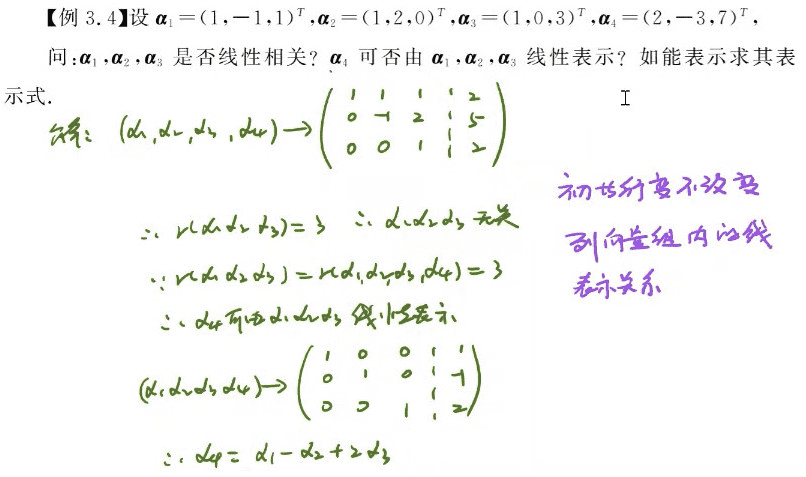 【例 3.4】设 α₁=(1,-1,1)ᵀ,α₂=(1,2,0)ᵀ,α₃=(1,0,3)ᵀ,α₄=(2,-3,7)ᵀ,
问:α₁,α₂,α₃ 是否线性相关? α₄ 可否由 α₁,α₂,α₃ 线性表示? 如能表示求其表
示式.
(α₁,α₂,α₃,α₄)→
1 1 1 2
0 -1 2 5
0 0 1 2
∴ r(α₁α₂α₃)=3 ∴ α₁α₂α₃ 无关
∵ r(α₁α₂α₃)=r(α₁,α₂,α₃,α₄)=3
∴ α₄可由α₁α₂α₃ 线性表示
(α₁α₂α₃α₄)→
1 0 0 1
0 1 0 -1
0 0 1 2
∴ α₄= α₁-α₂+2α₃
初等行变不改变
列向量组内的线
表示关系